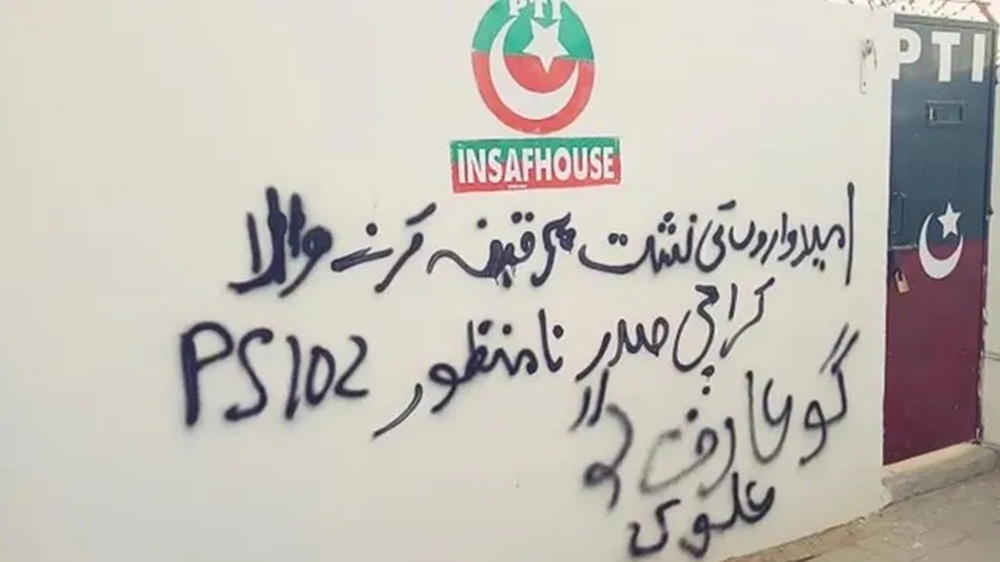 PTI
INSAFHOUSE
PTI
امیدواروں کی نشت پر قبضہ کرنے والا
کراچی صدر نامنظور PS102
گو عارف گو
علوی